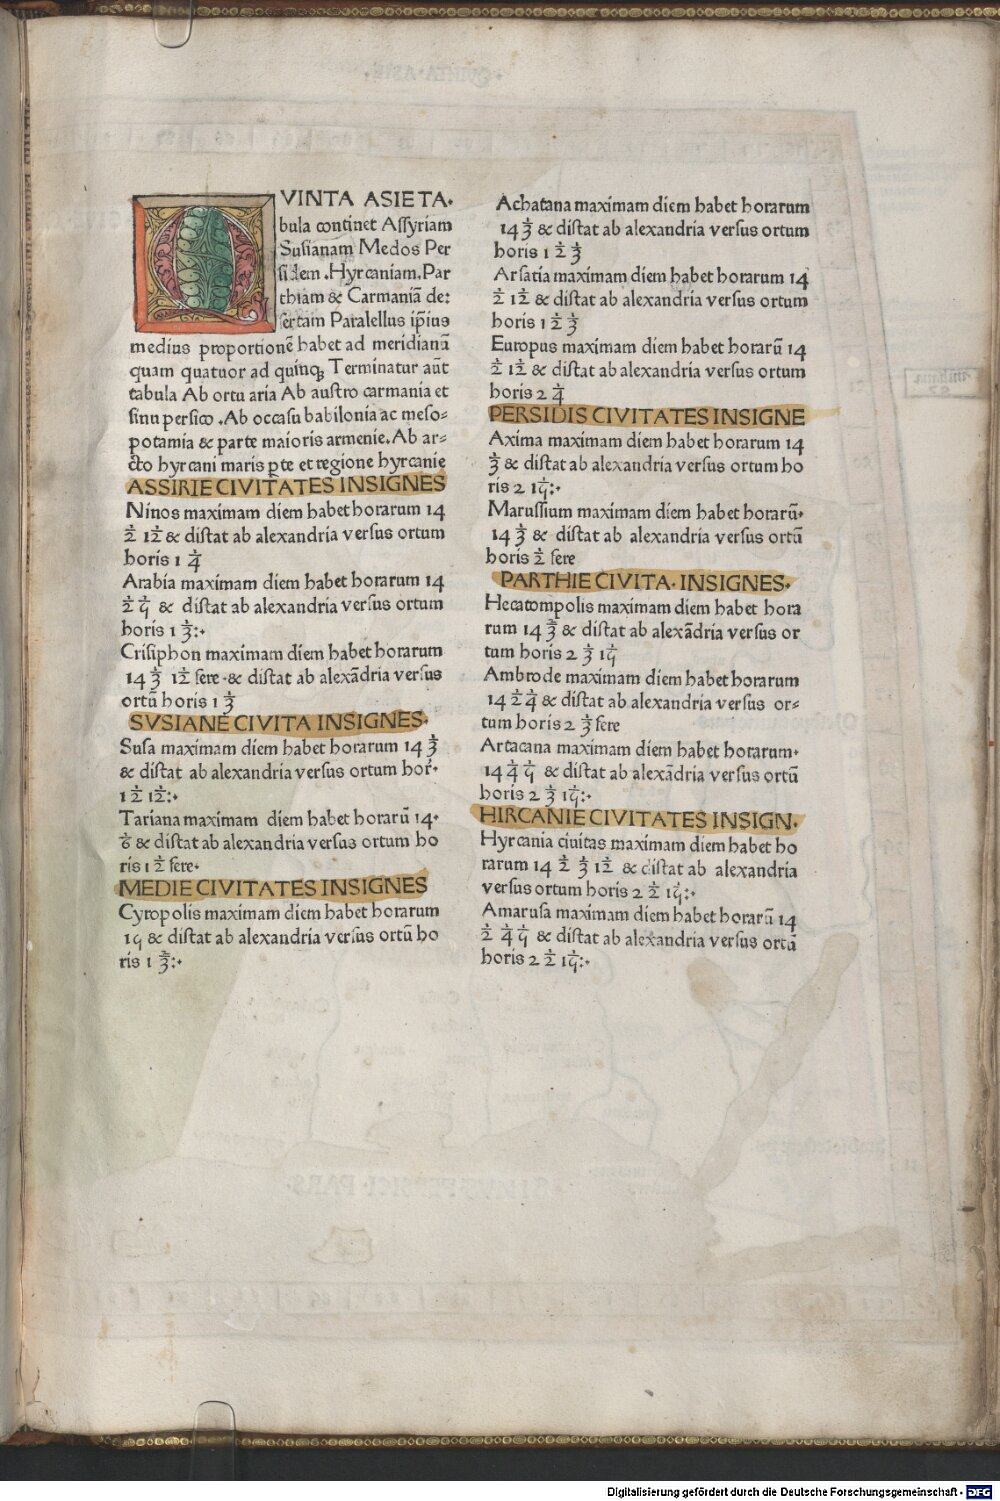 QVINTA ASIE TA·
bula continet Assyriam
Susianam Medos Per
sidem .Hyrcaniam.Par
thiam & Carmaniā de:
sertam Paralellus ip̄ius
medius proportionē habet ad meridianā
quam quatuor ad quinqꝫ Terminatur aūt
tabula Ab ortu aria Ab austro carmania et
sinu persico .Ab occasu babilonia ac meso=
potamia & parte maioris armenie.Ab ar=
cto hyrcani maris ꝑte et regione hyrcanie
ASSIRIE CIVITATES INSIGNES
Ninos maximam diem habet horarum 14
½ 1½ & distat ab alexandria versus ortum
horis 1 ¼
Arabia maximam diem habet horarum 14
& distat ab alexandria versus ortum
horis 1 ⅓:·
Crisiphon maximam diem habet horarum
14 ⅓ 1½ fere ·& distat ab alexādria versus
ortū horis 1 ⅓
SVSIANE CIVITA INSIGNES·
Susa maximam diem habet horarum 14 ⅓
& distat ab alexandria versus ortum hor·
1 ½ 1½:·
Tariana maximam diem habet horarū 14·
& distat ab alexandria versus ortum ho
ris 1 ½ fere·
MEDIE CIVITATES INSIGNES
Cyropolis maximam diem habet horarum
& distat ab alexandria versus ortū ho
ris 1 ⅓:·
Achatana maximam diem habet horarum
14 ⅓ & distat ab alexandria versus ortum
horis 1 ½ ⅓
Arsatia maximam diem habet horarum 14
½ 1½ & distat ab alexandria versus ortum
horis 1 ½ ⅓
Europus maximam diem habet horarū 14
½ 1½ & distat ab alexandria versus ortum
horis 2 ¼
PERSIDIS CIVITATES INSIGNE
Axima maximam diem habet horarum 14
⅓ & distat ab alexandria versus ortum ho
ris 2
Marussium maximam diem habet horarū·
14 ⅓ & distat ab alexandria versus ortū
horis ½ fere
PARTHIE CIVITA· INSIGNES·
Hecatompolis maximam diem habet hora
rum 14 ⅓ & distat ab alexādria versus or
tum horis 2 ⅓
Ambrode maximam diem habet horarum
14 ½ ¼ & distat ab alexandria versus or=
tum horis 2 ⅓ fere
Artacana maximam diem habet horarum·
14 ¼ & distat ab alexādria versus ortū
horis 2 ⅓
HIRCANIE CIVITATES INSIGN·
Hyrcania ciuitas maximam diem habet ho
rarum 14 ½ ⅓ 1½ & distat ab alexandria
versus ortum horis 2 ½
Amarusa maximam diem habet horarū 14
½ ¼ & distat ab alexandria versus ortū
horis 2 ½
Digitalisierung gefördert durch die Deutsche Forschungsgemeinschaft - DFG